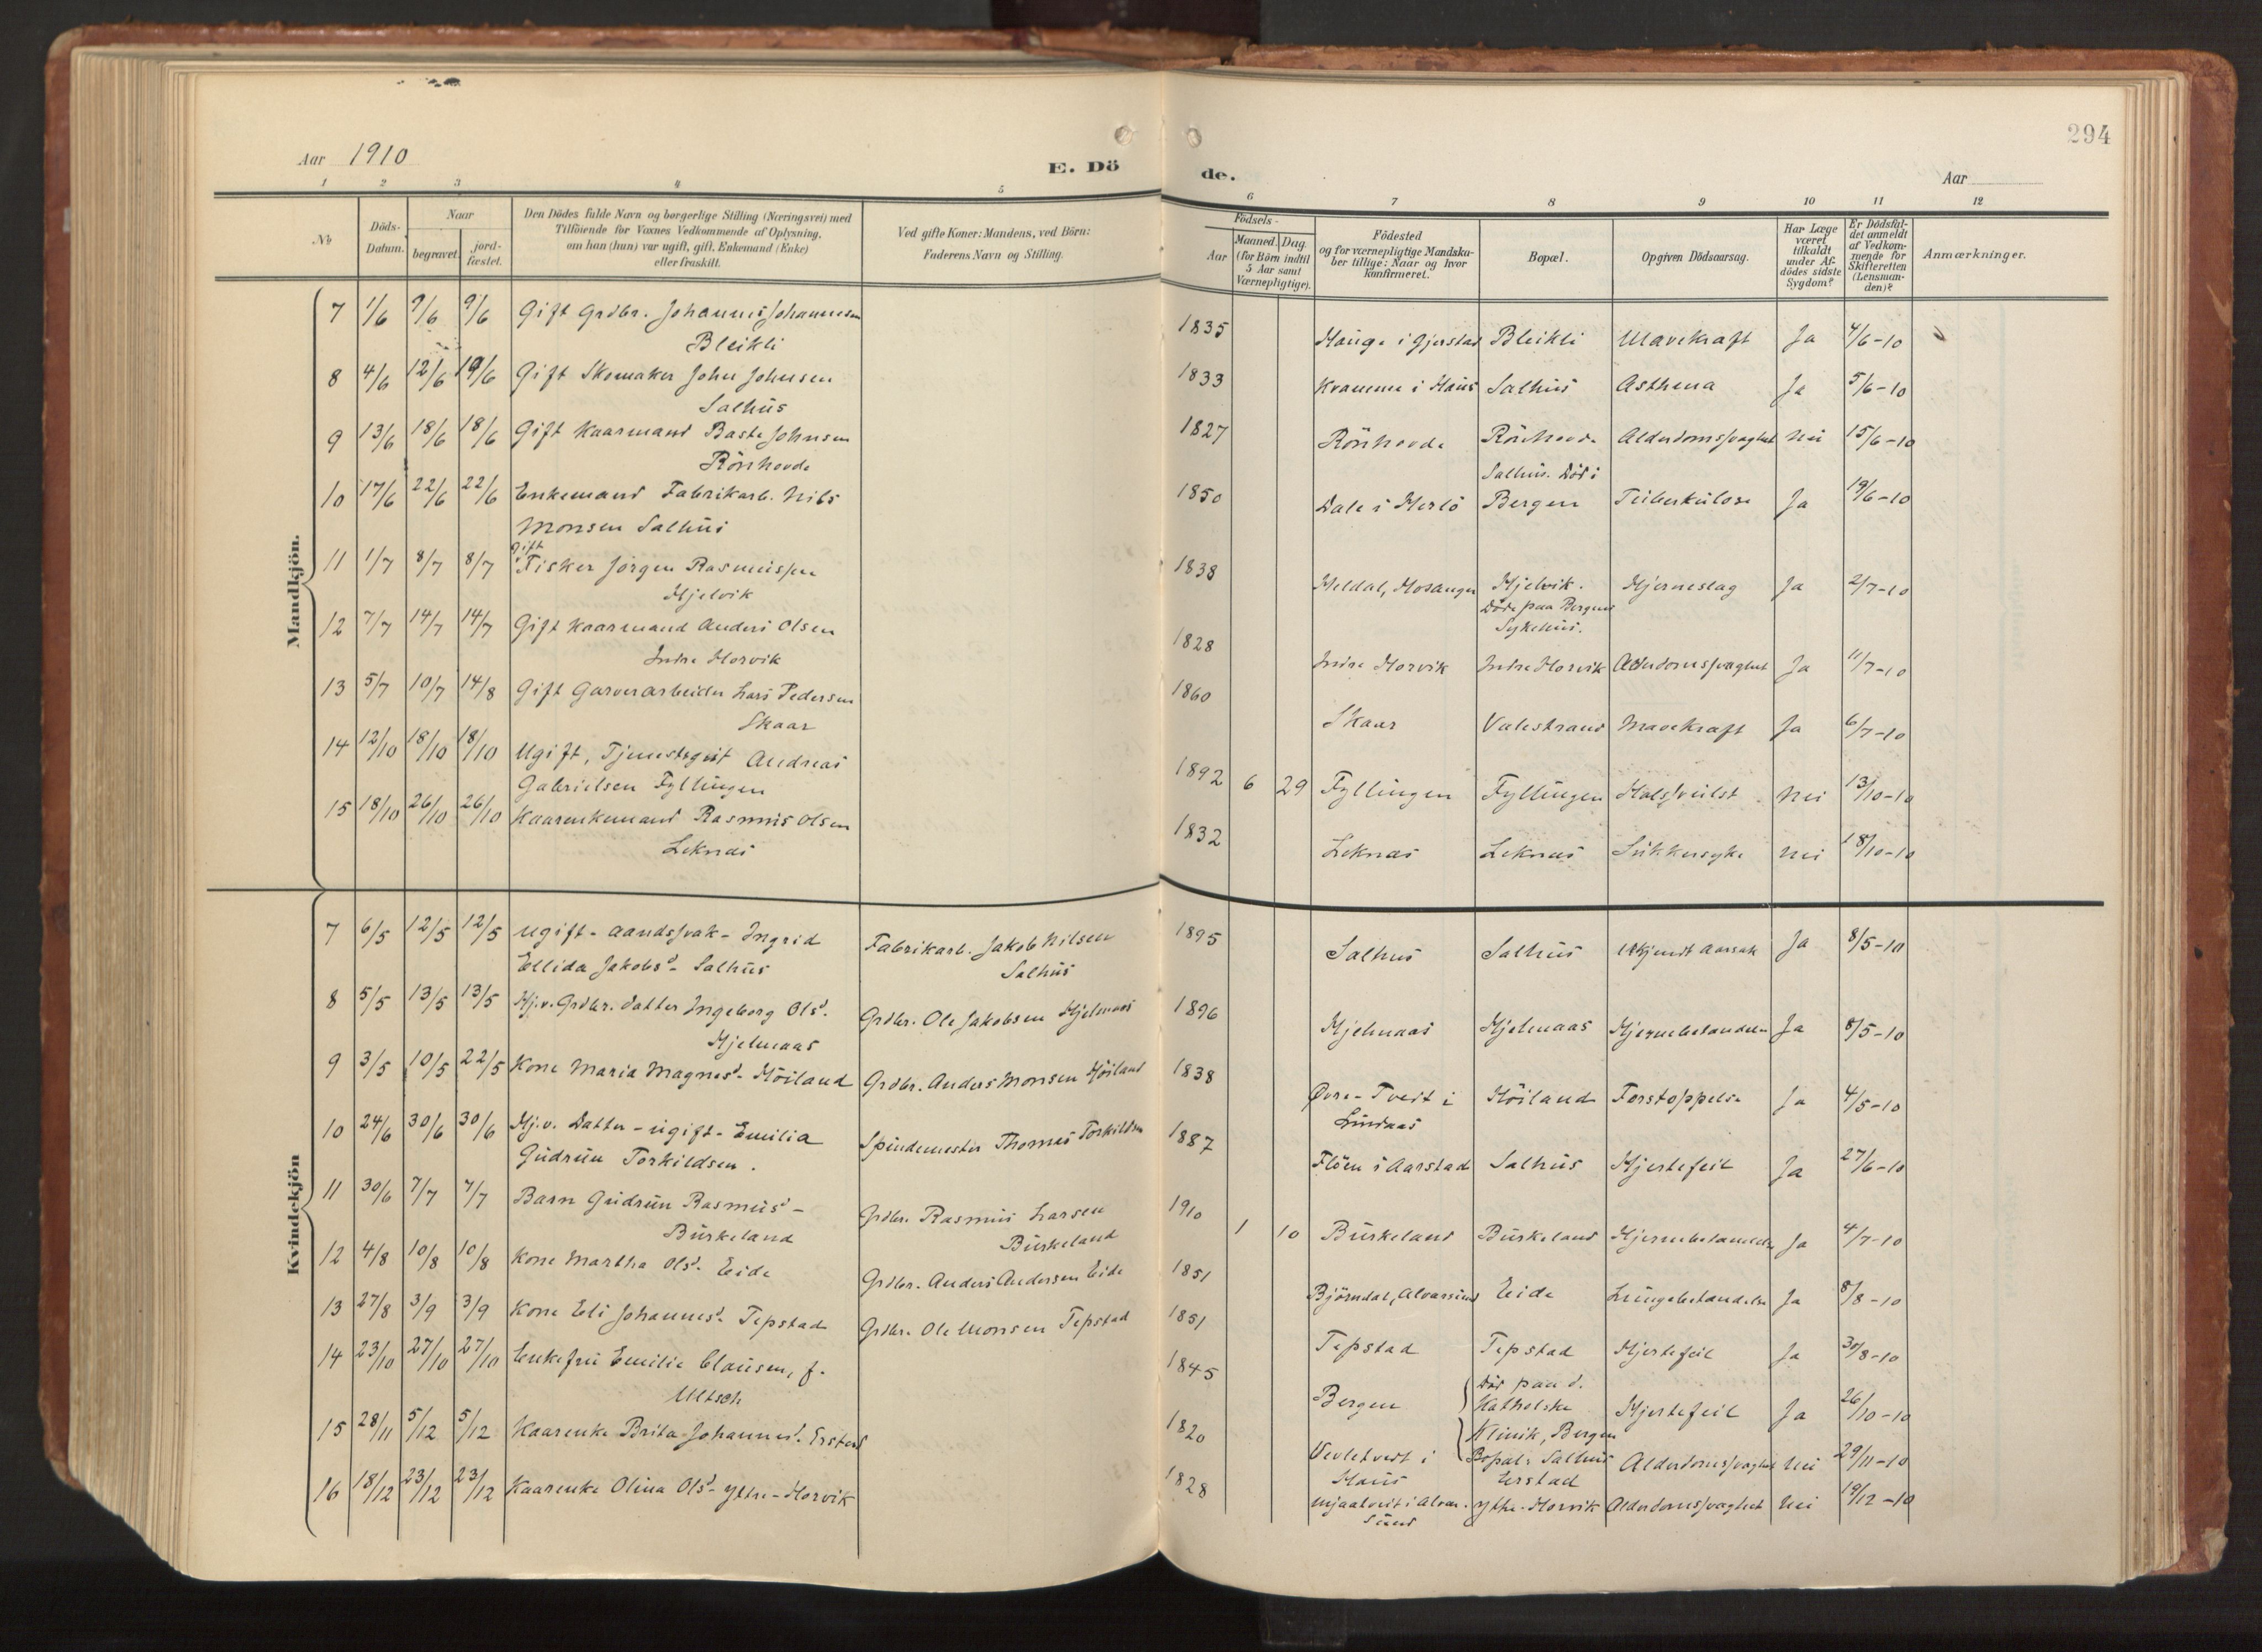 294
Aar 1910
E. Dö de.
Aar
1 2 3 4 5 6 7 8 9 10 11 12
No
Döds-Datum.
Naar
begravet.
jord-fæstet.
Den Dödes fulde Navn og borgerlige Stilling (Næringsvei) med
Tilföiende for Voxnes Vedkommende af Oplysning,
om han (hun) var ugift, gift, Enkemand (Enke)
eller fraskilt.
Ved gifte Koner: Mandens, ved Börn:
Faderens Navn og Stilling.
Födsels-
Aar
Maaned. Dag.
(for Börn indtil
5 Aar samt
Værnepligtige).
Födested
og for værnepligtige Mandska-
ber tillige: Naar og hvor
konfirmeret.
Bopæl.
Opgiven Dödsaarsag.
Har Læge
været
tilkaldt
under Af-
dödes sidste
Sygdom?
Er Dödsfal-
det anmeldt
af Vedkom-
mende for
Skifteretten
(Lensman-
den)?
Anmærkninger.
Mandkjön.
7 1/6 9/6 9/6 Gift Grdbr. Johannes Johannesen 1835 Hauge i Gjerstad Bleikli Mavekraft Ja 4/6-10
Bleikli
8 4/6 12/6 19/6 Gift Skomaker John Johnsen 1833 Kramme i Haus Salhus Asthma Ja 5/6-10
Salhus
9 13/6 18/6 18/6 Gift Kaarmand Baste Johnsen 1827 Rönhovde Rönhovde Alderdomssvaghet Nei 15/6-10
Rönhovde
Salhus. Död i
10 17/6 22/6 22/6 Enkemand Fabrikarb. Nils 1850 Dale i Herlö Bergen Tuberkulose Ja 19/6-10
Monsen Salhus
gift
11 1/7 8/7 8/7 Fisker Jörgen Rasmussen 1838 Meldal, Hosanger Hjelvik. Hjerneslag Ja 2/7-10
Hjelvik
Döde paa Bergens
Sykehus.
12 7/7 14/7 14/7 Gift Kaarmand Anders Olsen 1828 Indre Horvik Indre Horvik Alderdomssvaghet Ja 11/7-10
Indre Horvik
13 5/7 10/7 14/8 Gift Garverarbeider Lars Pedersen 1860 Skaar Valestrand Mavekraft Ja 6/7-10
Skaar
14 12/10 18/10 18/10 Ugift, Tjenestegut Andreas 1892 6 29 Fyllingen Fyllingen Halssvulst Nei 13/10-10
Gabrielsen Fyllingen
15 18/10 26/10 26/10 Kaarenkemand Rasmus Olsen 1832 Leknes Leknes Sukkersyke Nei 18/10-10
Leknes
Kvindekjön
7 6/5 12/5 12/5 Ugift - aandssvak - Ingrid Fabrikarb. Jakob Nilsen 1895 Salhus Salhus Ukjendt Aarsak Ja 8/5-10
Ellida Jakobsd. Salhus Salhus
8 5/5 13/5 13/5 Hj.v. Grdbr. datter Ingeborg Olsd. Grdbr. Ole Jakobsen Hjelmaas 1896 Hjelmaas Hjelmaas Hjernebetændelse Ja 8/5-10
Hjelmaas
9 3/5 10/5 22/5 Kone Maria Magnesd. Höiland Grdbr. Anders Monsen Höiland 1838 Övre-Tveit i Höiland Forstoppelse Ja 4/5-10
Lindaas
10 24/6 30/6 30/6 Hj.v. Datter - ugift - Emilia Spindemester Thomas Torkildsen 1887 Flöen i Aarstad Salhus Hjertefeil Ja 27/6-10
Gudrun Torkildsen.
11 30/6 7/7 7/7 Barn Gudrun Rasmusd. - Grdbr. Rasmus Larsen 1910 1 10 Burkeland Burkeland Hjernebetændelse Ja 4/7-10
Burkeland Burkeland
12 4/8 10/8 10/8 Kone Martha Olsd. Eide Grdbr. Anders Andersen Eide 1851 Björndal, Alversund Eide Lungebetændelse Ja 8/8-10
13 27/8 3/9 3/9 Kone Eli Johannesd. Tepstad Grdbr. Ole Monsen Tepstad 1851 Tepstad Tepstad Hjertefeil Ja 30/8-10
14 23/10 27/10 27/10 Enkefru Emilie Clausen, f. 1845 Bergen Död paa d. Hjertefeil Ja 26/10-10
Ultsch
Katholske
Klinik, Bergen
Bopæl: Salhus
15 28/11 5/12 5/12 Kaarenke Brita Johannesd. Erstad 1820 Vevletvedt i Erstad Alderdomssvaghet Nei 29/11-10
Haus
16 18/12 23/12 23/12 Kaarenke Olina Olsd. Ytre-Horvik 1828 Mjaatveit i Alver- Ytre-Horvik Alderdomssvaghet Nei 19/12-10
sund